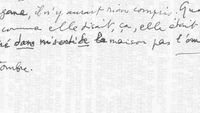 , il n'y aurait rien compris. Qua
comme elle disait, ça, elle était
dans de la maison pas l'om
ombre.